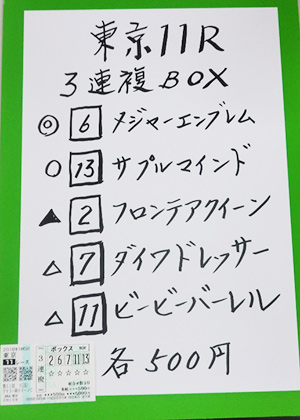 東京11R
3連複BOX
◎ 6 メジャーエンブレム
○ 13 サプルマインド
▲ 2 フロンテアクイーン
△ 7 ダイワドレッサー
△ 11 ビービーバーレル
各500円
東京
11レース
ボックス
3連複
2 6 7 11 13
☆☆☆☆☆